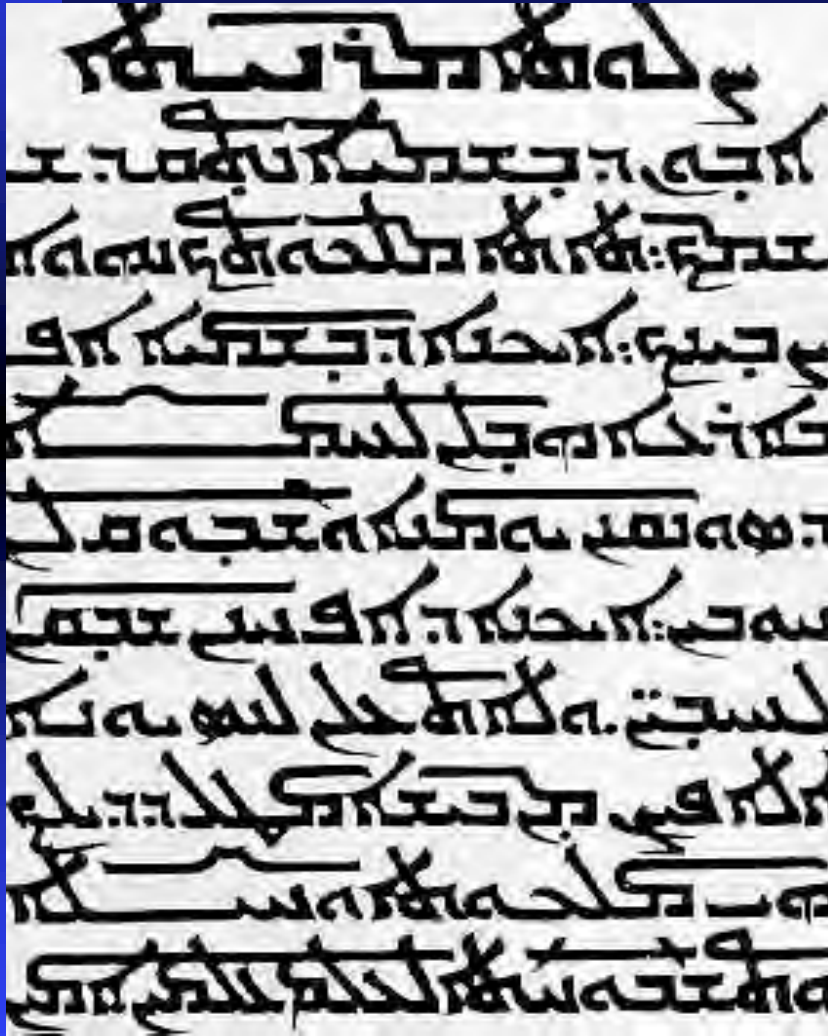 ܨܠܘܬܐ ܡܪܢܝܬܐ
ܐܒܘܢ ܕܒܫܡܝܐ ܢܬܩܕܫ
ܫܡܟ܆ ܬܐܬܐ ܡܠܟܘܬܟ ܢܗܘܐ
ܨܒܝܢܟ܆ ܐܝܟܢܐ ܕܒܫܡܝܐ ܐܦ
ܒܐܪܥܐ ܗܒ ܠܢ ܠܚܡܐ
ܕܣܘܢܩܢܢ ܝܘܡܢܐ ܘܫܒܘܩ ܠܢ
ܚܘܒܝܢ܆ ܐܝܟܢܐ ܕܐܦ ܚܢܢ ܫܒܩܢ
ܠܚܝܒ̈ܝܢ. ܘܠܐ ܬܥܠܢ ܠܢܣܝܘܢܐ
ܐܠܐ ܦܨܢ ܡܢ ܒܝܫܐ ܡܛܠ ܕܕܝܠܟ
ܗܝ ܡܠܟܘܬܐ ܘܚܝܠܐ
ܘܬܫܒܘܚܬܐ ܠܥܠܡ ܥܠܡܝܢ ܐܡܝܢ